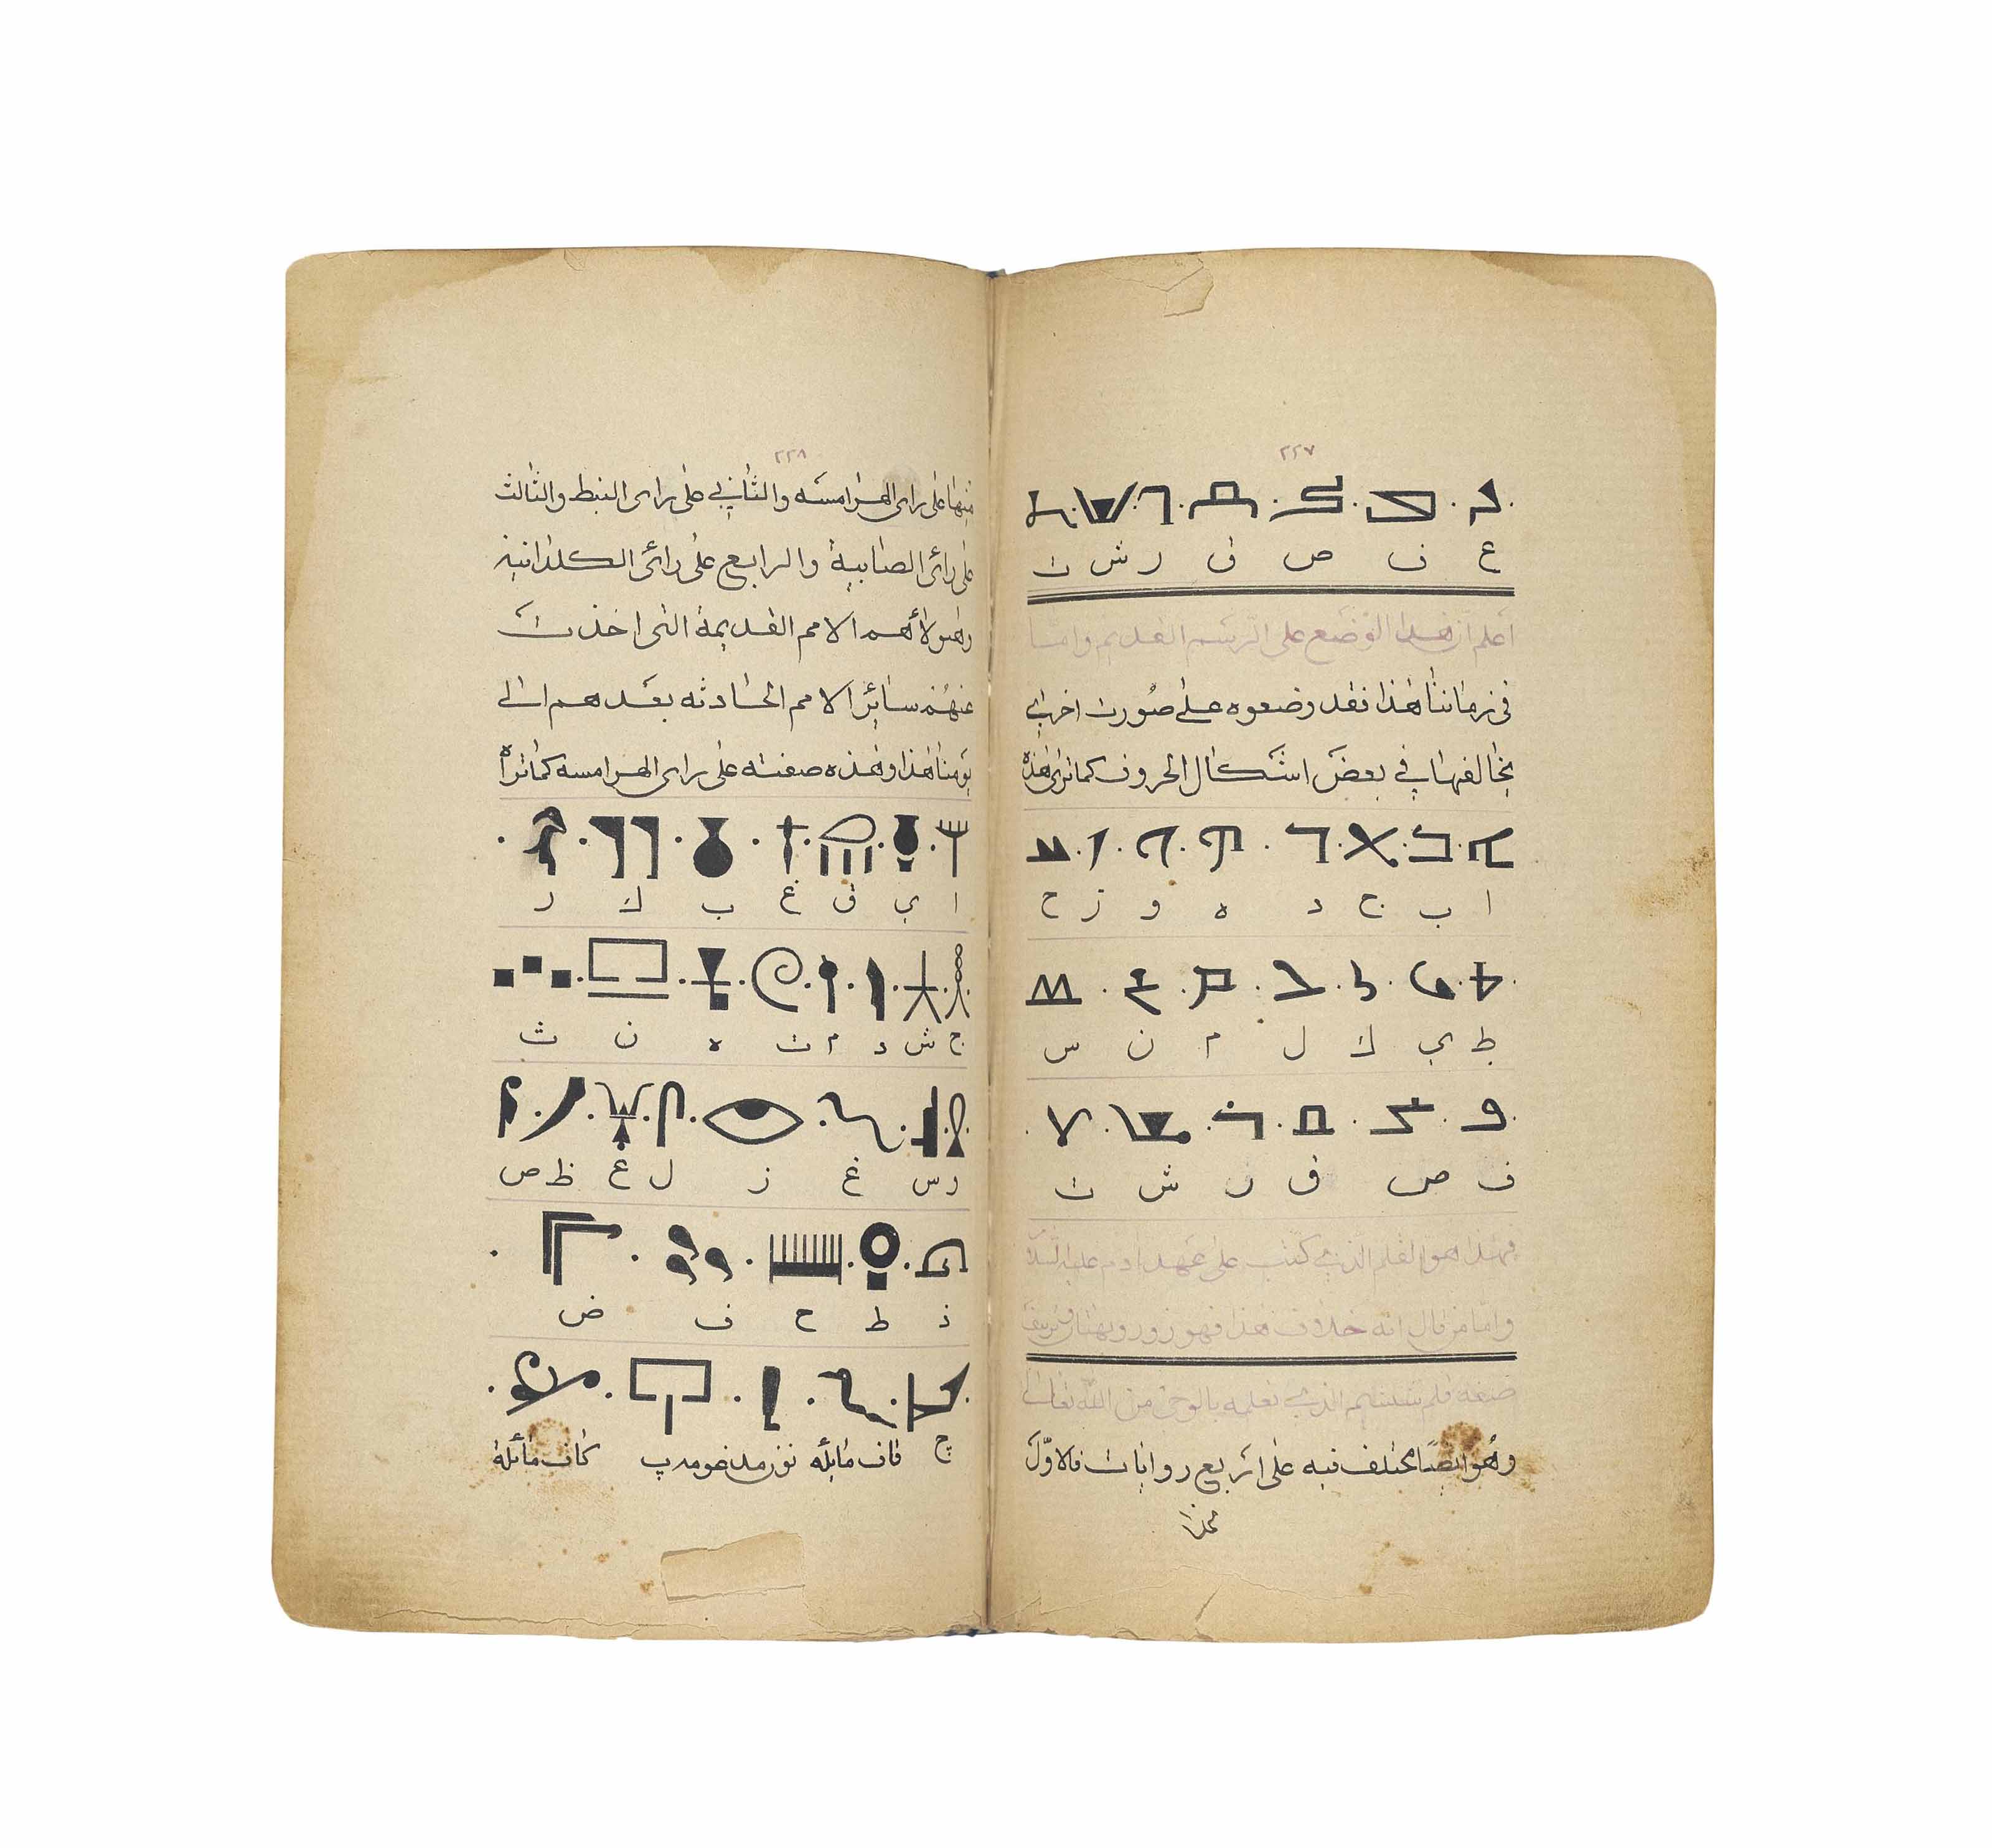 ٢٢٧
ع ف ص ق ر ش ت
اعلم ان هذا الوضع على الرسم القديم واما
في زماننا هذا فقد وضعوه على صورت اخرى
يخالفها في بعض اشكال الحروف كما ترى هذه
ا ب ج د ه و ز ح
ط ي ك ل م ن س
ف ص ق ر ش ت
فهذا هو القلم الذي كتب على عهد ادم عليه السلام
واما من قال انه خلاف هذا فهو زور وبهتان
صفة قلم شيشيم الذي تعلمه بالوحي من الله تعالى
وهو ايضًا مختلف فيه على اربع روايات فالاوّل
٢٢٨
منها على راى الهرامسه والثاني على راى النبط والثالث
على رائ الصابية والرابع على رائ الكلدانية
وهولاء هم الامم القديمة التى اخذت
عنهم سائر الامم الحادثه بعدهم الى
يومنا هذا وهذه صفته على راى الهرامسه كما تراه
ا ي ق غ ب ك ر
ج ش د م ت ه ن ث
ر س غ ز ل ع ظ ص
ذ ط ح ف ض
چ قاف مايلة كاف مائلة